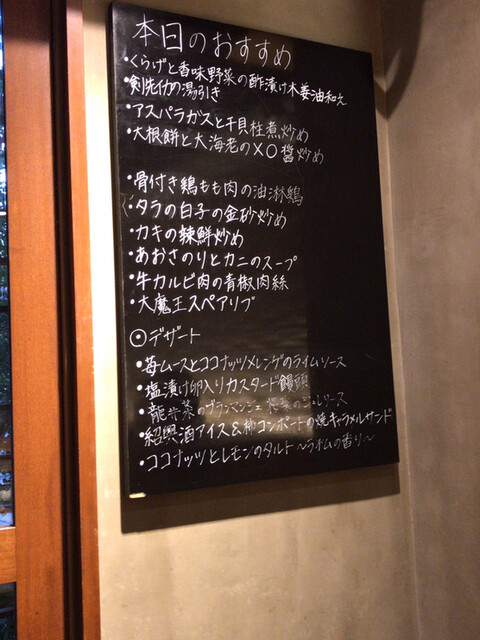 本日のおすすめ
・くらげと香味野菜の酢漬け木姜油和え
・剣先イカの湯引き
・アスパラガスと干貝柱煮炒め
・大根餅と大海老のXO醤炒め
・骨付き鶏もも肉の油淋鶏
・タラの白子の金砂炒め
・カキの辣鮮炒め
・あおさのりとカニのスープ
・牛カルビ肉の青椒肉絲
・大魔王スペアリブ
◎デザート
・苺ムースとココナッツメレンゲのライムソース
・塩漬け卵入りカスタード饅頭
・龍井茶のブランマンジェ のジュレソース
・紹興酒アイス&柿コンポートの焼キャラメルサンド
・ココナッツとレモンのタルト 〜ライムの香り〜